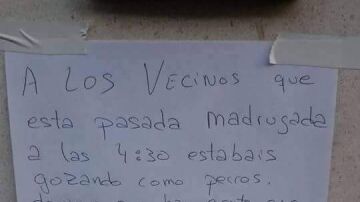 A LOS VECINOS que
esta pasada madrugada
a las 4:30 estabais
gozando como perros,